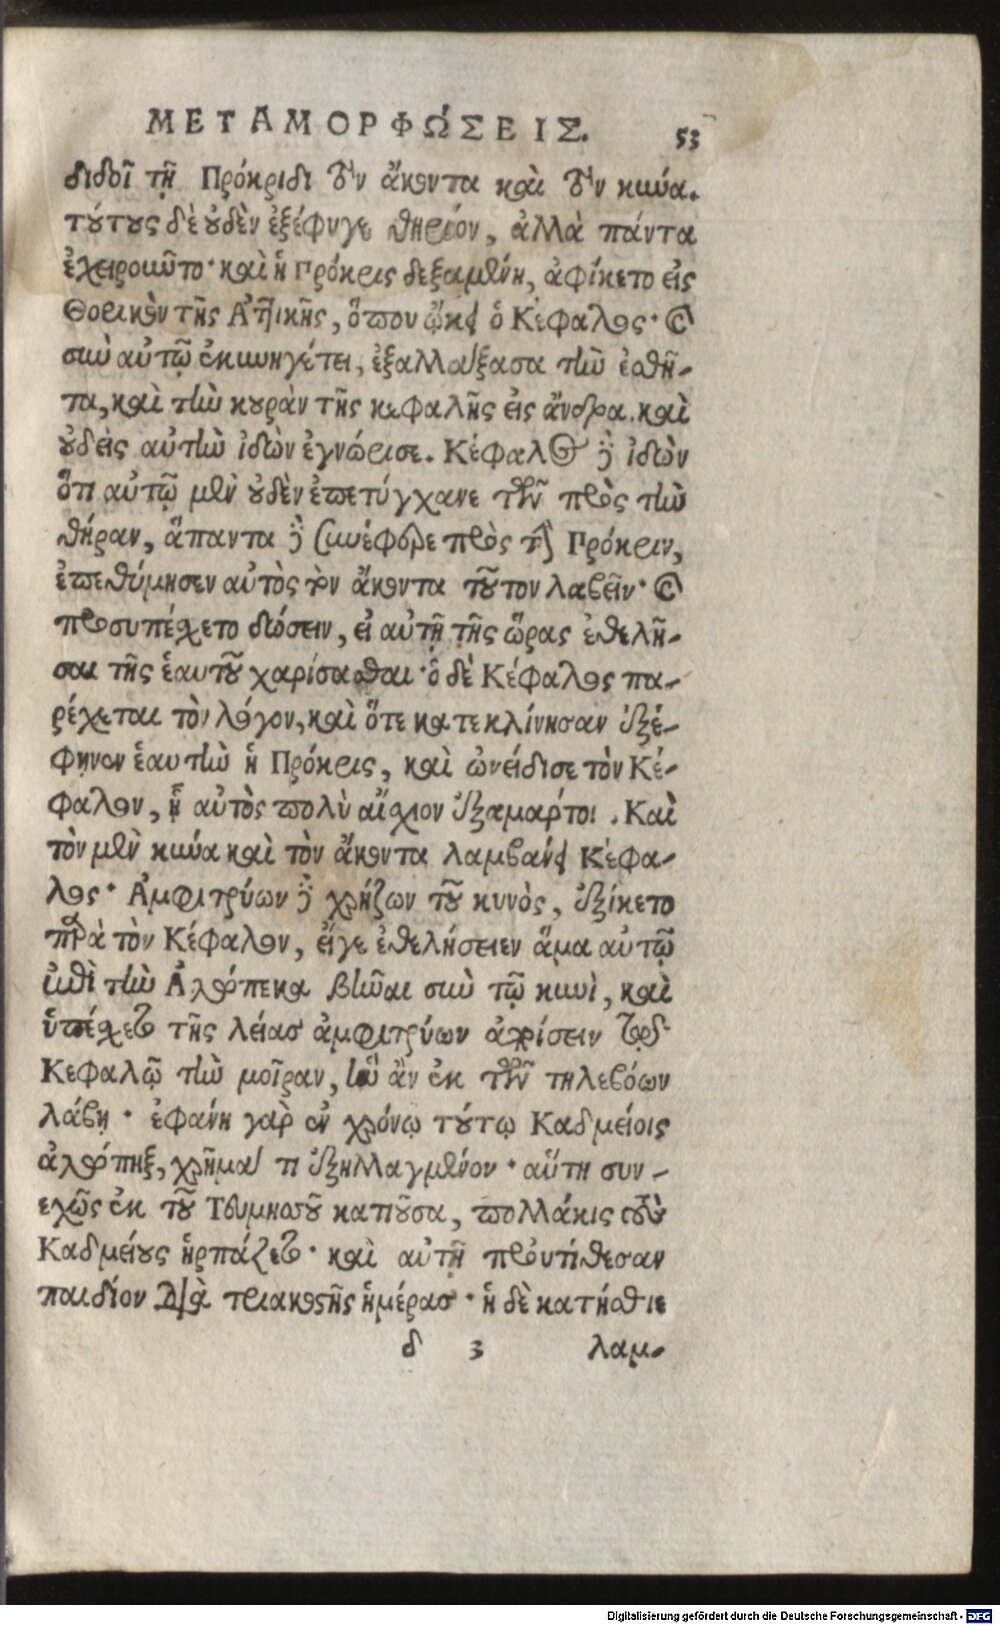 ΜΕΤΑΜΟΡΦΏΣΕΙΣ. 53
διδοῖ τῇ Πρόκριδι τὸν ἄκοντα καὶ τὸν κύνα.
τούτους δὲ οὐδὲν ἐξέφυγε θηρίον, ἀλλὰ πάντα
ἐχειροῦντο· καὶ ἡ Πρόκρις δεξαμένη, ἀφίκετο εἰς
Θορικὸν τῆς Ἀττικῆς, ὅπου ᾤκει ὁ Κέφαλος· καὶ
σὺν αὐτῷ ἐκυνηγέτει, ἐξαλλάξασα τὴν ἐσθῆ-
τα, καὶ τὴν κουρὰν τῆς κεφαλῆς εἰς ἄνδρα. καὶ
οὐδεὶς αὐτὴν ἰδὼν ἐγνώρισε. Κέφαλος δὲ ἰδὼν
ὅτι αὐτῷ μὲν οὐδὲν ἐπετύγχανε τῶν πρὸς τὴν
θήραν, ἅπαντα δὲ συνέφερε πρὸς τὴν Πρόκριν,
ἐπεθύμησεν αὐτὸς τὸν ἄκοντα τοῦτον λαβεῖν· καὶ
προσυπέχετο δώσειν, εἰ αὐτῇ τῆς ὥρας ἐθελῆ-
σαι τῆς ἑαυτοῦ χαρίσασθαι· ὁ δὲ Κέφαλος πα-
ρέχεται τὸν λόγον, καὶ ὅτε κατεκλίνησαν ἐξέ-
φηνεν ἑαυτὴν ἡ Πρόκρις, καὶ ὠνείδισε τὸν Κέ-
φαλον, ᾗ αὐτὸς πολὺ αἴσχιον ἐξαμάρτοι. Καὶ
τὸν μὲν κύνα καὶ τὸν ἄκοντα λαμβάνει Κέφα-
λος· Ἀμφιτρύων δὲ χρήζων τοῦ κυνὸς, ἐξίκετο
παρὰ τὸν Κέφαλον, εἴγε ἐθελήσειεν ἅμα αὐτῷ
ἐπὶ τὴν Ἀλώπεκα βῆναι σὺν τῷ κυνὶ, καὶ
ὑπέχετο τῆς λείας ἀμφιτρύων ἀχρίσειν τῷδε
Κεφαλῷ τὴν μοῖραν, ἣν ἂν ἐκ τῶν τηλεβόων
λάβῃ· ἐφάνη γὰρ ἐν χρόνῳ τούτῳ Καδμείοις
ἀλώπηξ, χρῆμά τι ἐξηλλαγμένον· αὕτη συν-
εχῶς ἐκ τοῦ Τευμησοῦ κατιοῦσα, πολλάκις τοὺς
Καδμείους ἡρπάζετο· καὶ αὐτῇ προὐτίθεσαν
παιδίον διὰ τριακοστῆς ἡμέρας· ἡ δὲ κατήσθιε
δ 3 λαμ-
Digitalisierung gefördert durch die Deutsche Forschungsgemeinschaft - DFG